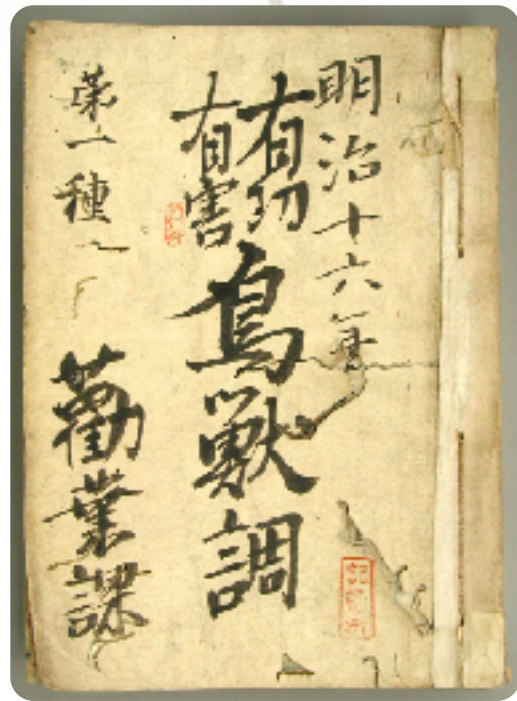 明治十六年
有功
有害
鳥獣調
第一種
勸業課